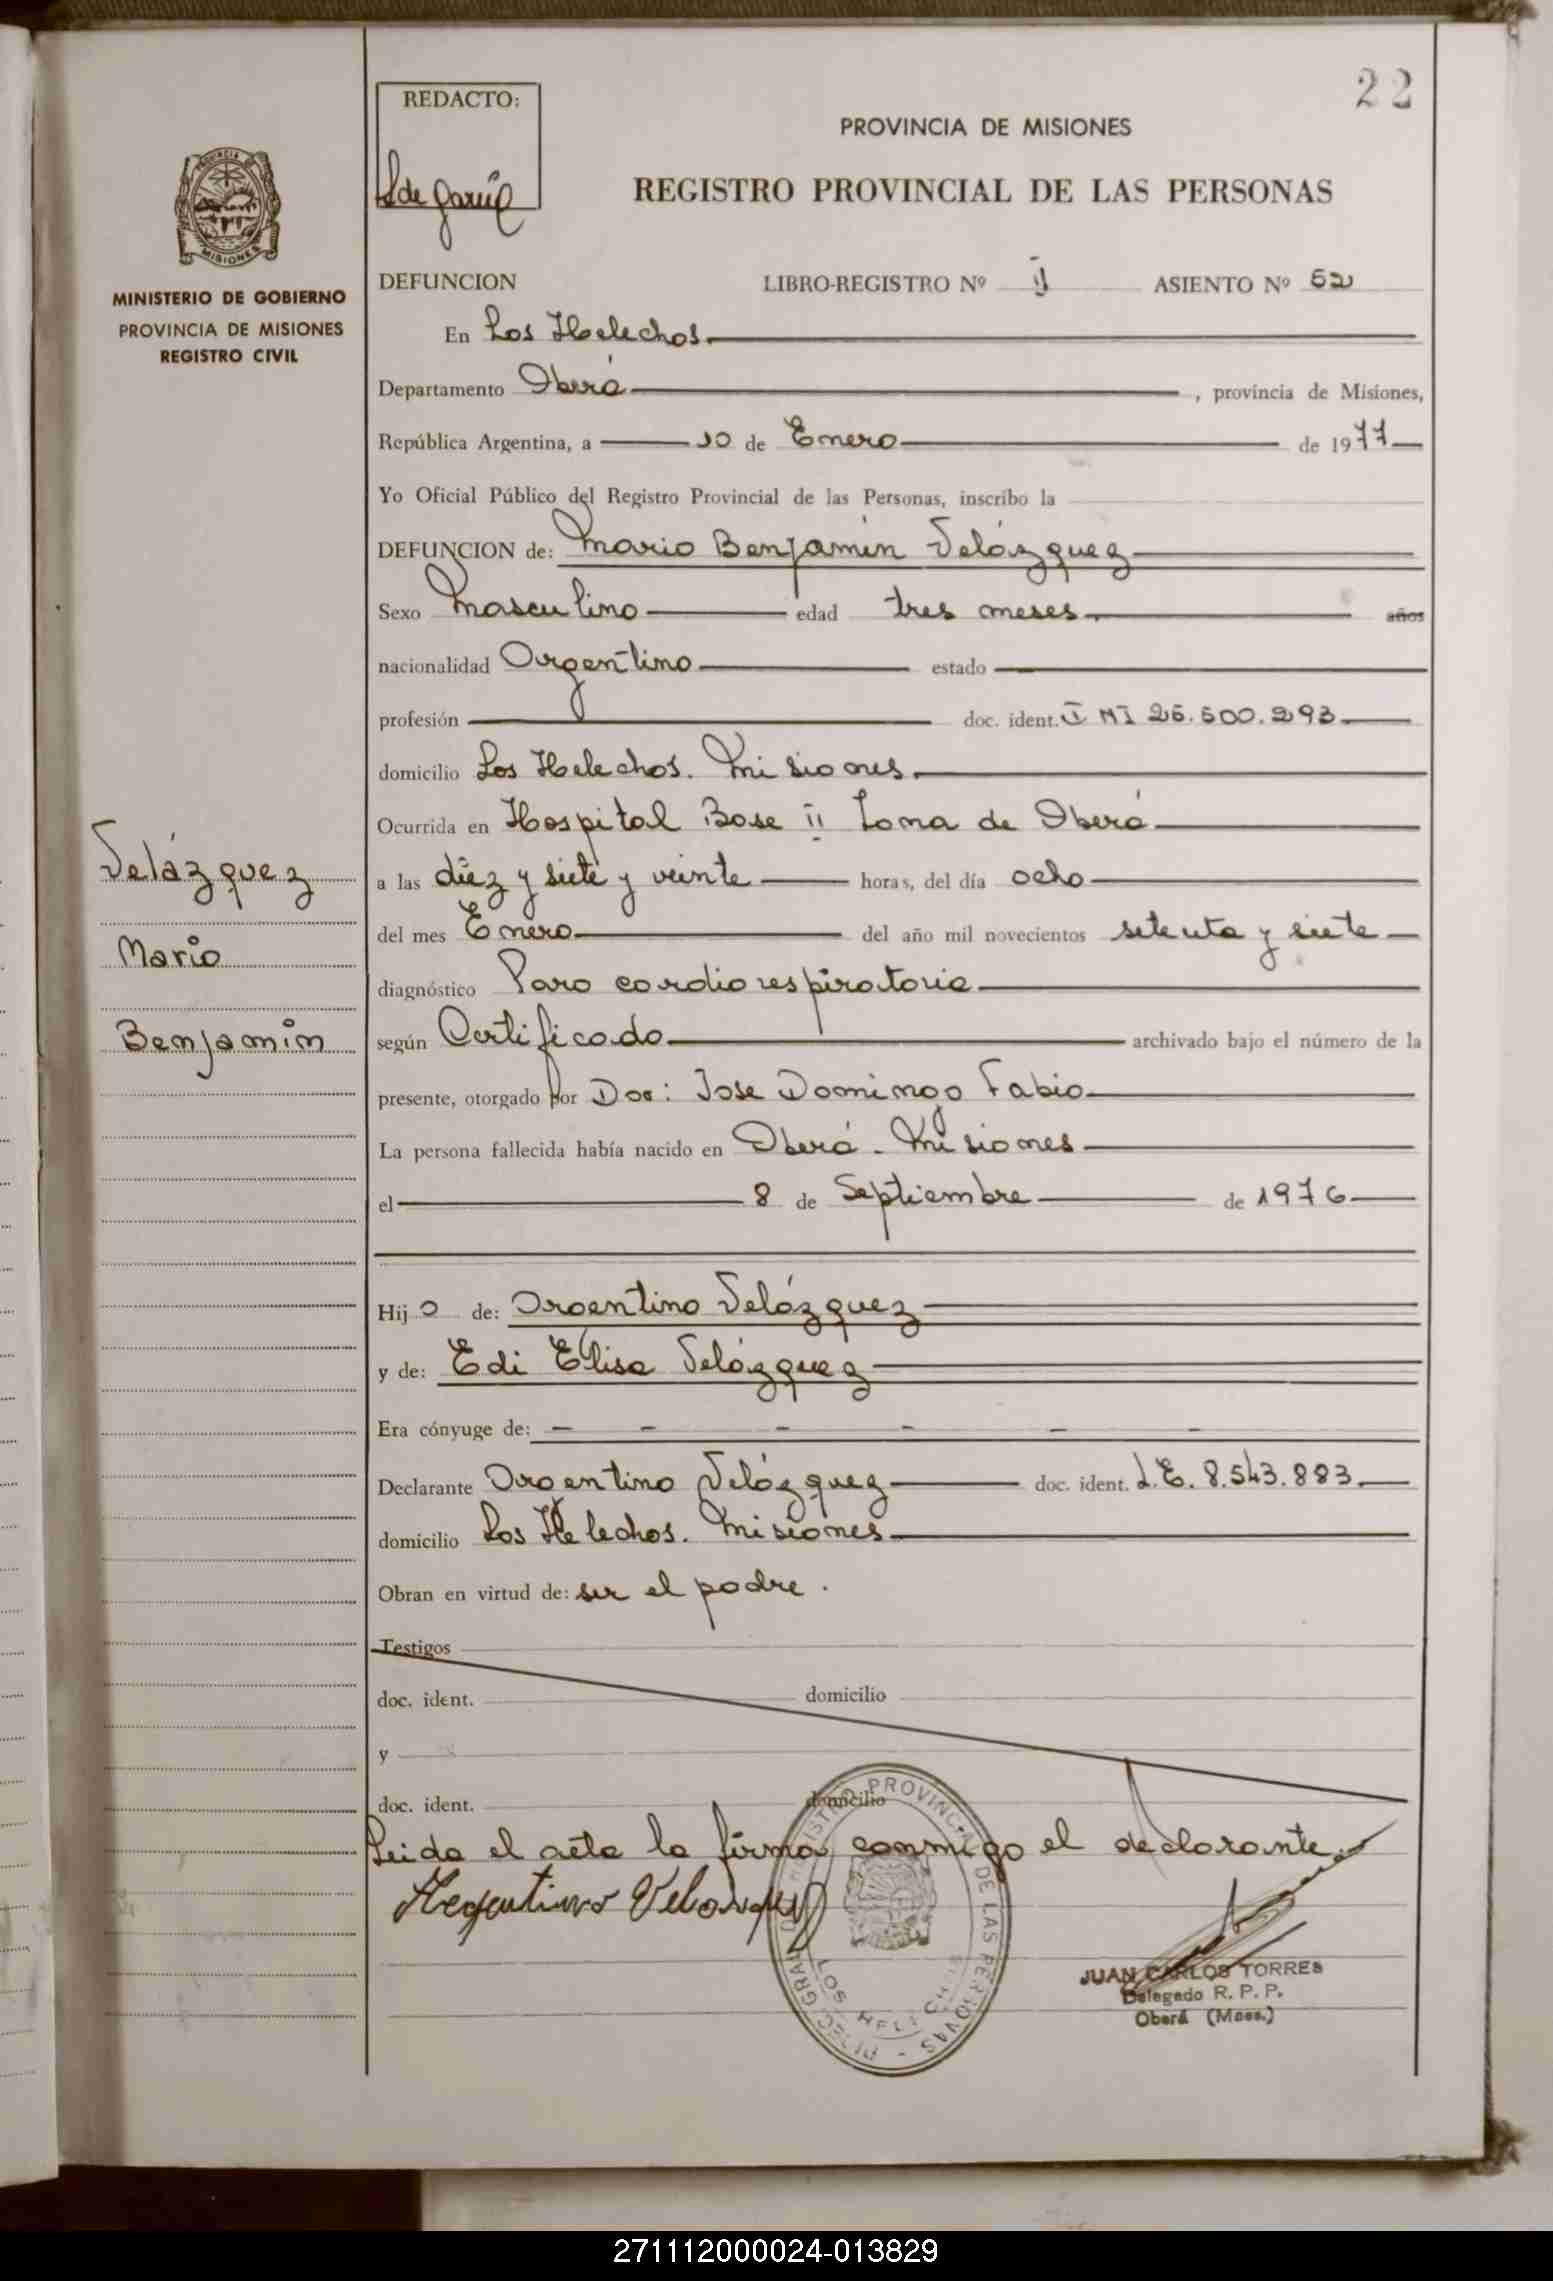 22
REDACTO:
PROVINCIA DE MISIONES
REGISTRO PROVINCIAL DE LAS PERSONAS
PROVINCIA DE
MISIONES
MINISTERIO DE GOBIERNO
PROVINCIA DE MISIONES
REGISTRO CIVIL
DEFUNCION LIBRO-REGISTRO Nº II ASIENTO Nº 52
En Los Helechos
Departamento Oberá, provincia de Misiones,
República Argentina, a 10 de Enero de 1977
Yo Oficial Público del Registro Provincial de las Personas, inscribo la
DEFUNCION de: Mario Benjamin Velázquez
Sexo Masculino edad tres meses. años
nacionalidad Argentino estado
profesión doc. ident. I MI 25.500.293
domicilio Los Helechos. Misiones
Ocurrida en Hospital Base II Zona de Oberá
a las diez y siete y veinte horas, del día ocho
del mes Enero del año mil novecientos setenta y siete
diagnóstico Paro cardiorespiratorio
según Certificado archivado bajo el número de la
presente, otorgado por Doc: Jose Domingo Fabio
La persona fallecida había nacido en Oberá - Misiones
el 8 de Septiembre de 1976
Velázquez
Mario
Benjamin
Hijo de: Argentino Velázquez
y de: Edi Elisa Velázquez
Era cónyuge de: - - - - - -
Declarante Argentino Velázquez doc. ident. L.E. 8.543.883
domicilio Los Helechos. Misiones
Obran en virtud de: ser el padre.
Testigos
doc. ident. domicilio
y
doc. ident. domicilio
Leida el acta la firma conmigo el declarante.
Argentino Velazquez
REGISTRO PROVINCIAL DE LAS PERSONAS
LOS HELECHOS
JUAN CARLOS TORRES
Delegado R. P. P.
Oberá (Mnes.)
271112000024-013829